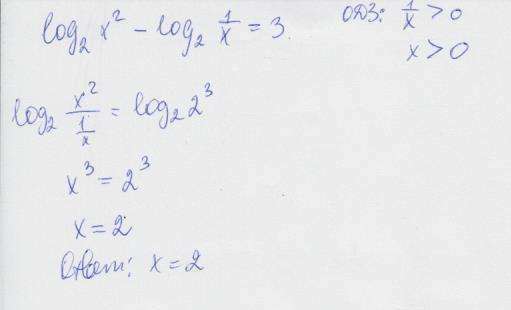 log₂ x² − log₂ 1/x = 3. ОДЗ: 1/x > 0
x > 0
log₂ x²/(1/x) = log₂ 2³
x³ = 2³
x = 2
Ответ: x = 2